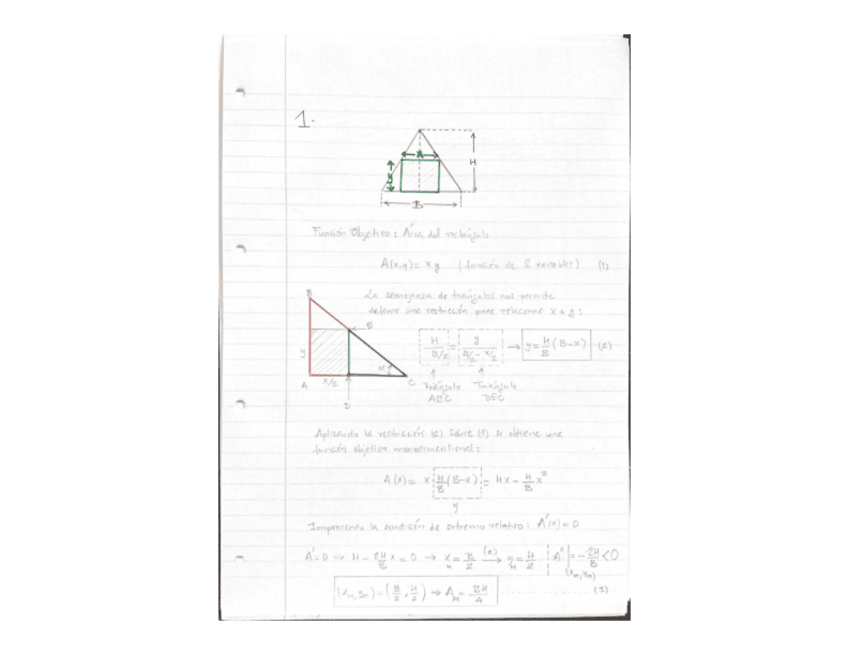 1.
x
y
H
B
Función Objetivo: Área del rectángulo
A(x,y)= x y (función de 2 variables) (1)
La semejanza de triángulos nos permite
definir una restricción para relacionar x e y:
B
E
y
A
x/2
D
α
C
H/(B/2) = y/(B/2 - x/2) → y = H/B (B-x) (2)
Triángulo Triángulo
ABC DEC
Aplicando la restricción (2) sobre (1) se obtiene una
función objetivo monodimensional:
A(x)= x H/B (B-x) = Hx - H/B x²
y
Imponiendo la condición de extremo relativo: A'(x)=0
A'=0 ⇒ H - 2H/B x = 0 → x_M = B/2 (2)→ y_M = H/2 | A''|(x_M, y_M) = -2H/B < 0
(x_M, y_M) = (B/2, H/2) → A_M = BH/4 ............ (3)